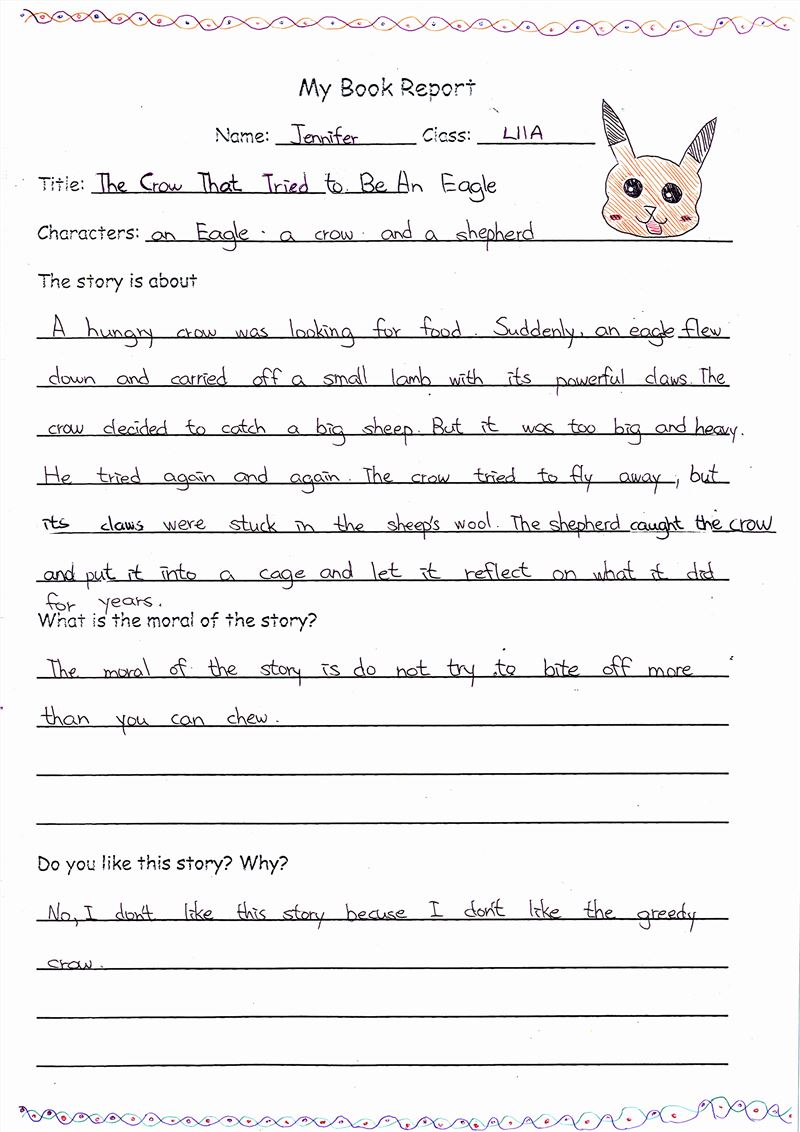 My Book Report
Name: Jennifer Class: L11A
Title: The Crow That Tried to Be An Eagle
Characters: an Eagle . a crow . and a shepherd
The story is about
A hungry crow was looking for food. Suddenly, an eagle flew
down and carried off a small lamb with its powerful claws. The
crow decided to catch a big sheep. But it was too big and heavy.
He tried again and again. The crow tried to fly away, but
its claws were stuck in the sheep's wool. The shepherd caught the crow
and put it into a cage and let it reflect on what it did
for years.
What is the moral of the story?
The moral of the story is do not try to bite off more
than you can chew.
Do you like this story? Why?
No, I don't like this story becuse I don't like the greedy
crow.